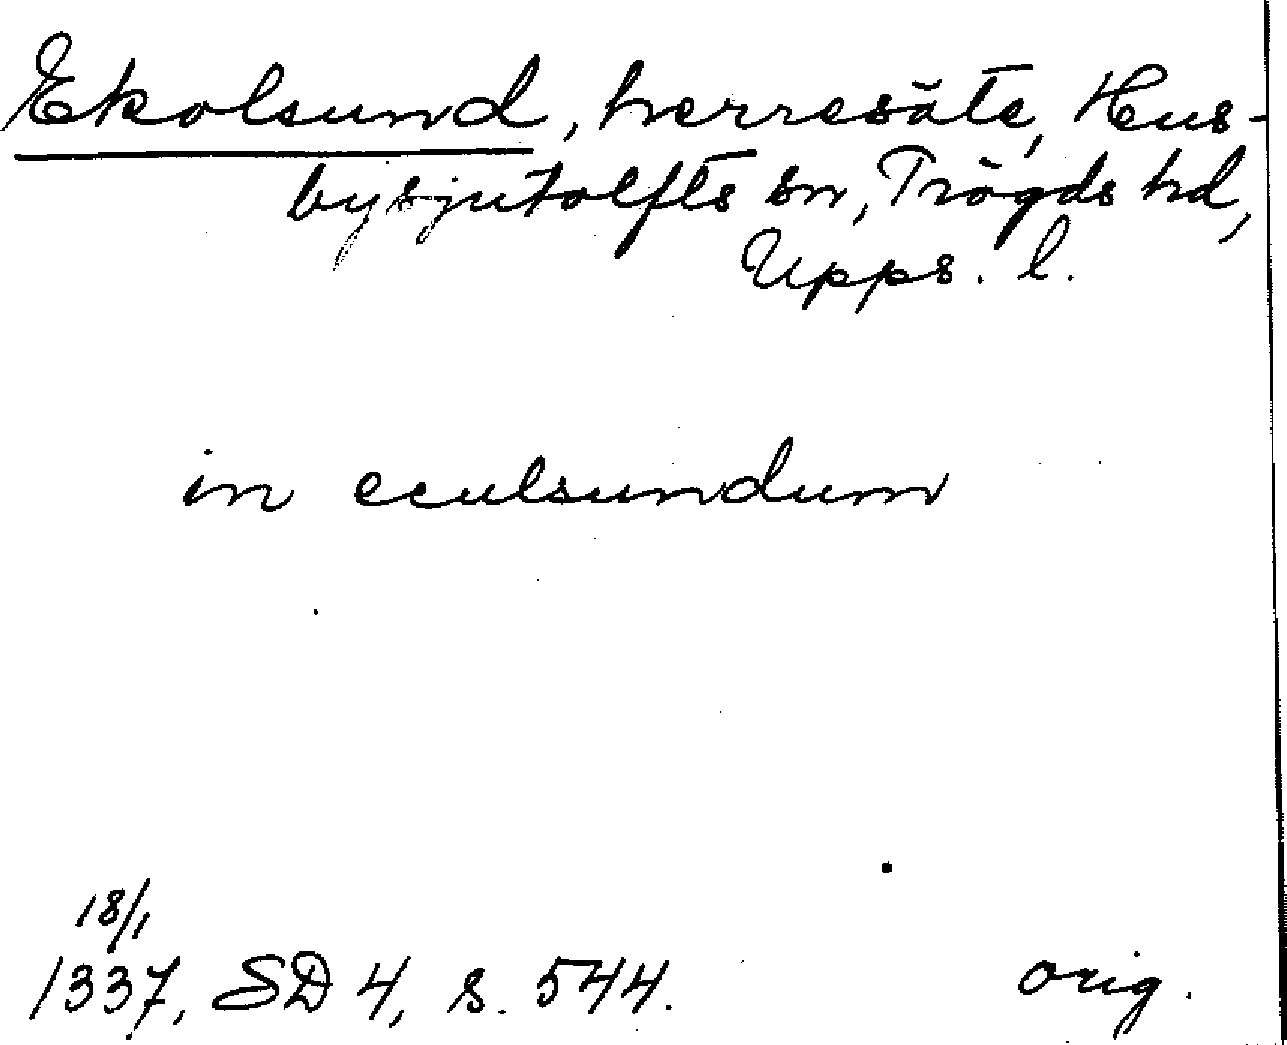 Ekolsund, herresäte, Hus-
bysjutolfts sn, Trögds hd,
Upps. l.
in eculsundum
18/1
1337, SD 4, s. 544.
orig.